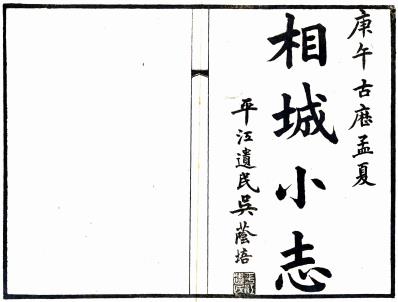 庚午古历孟夏
相城小志
平江遺民吳蔭培